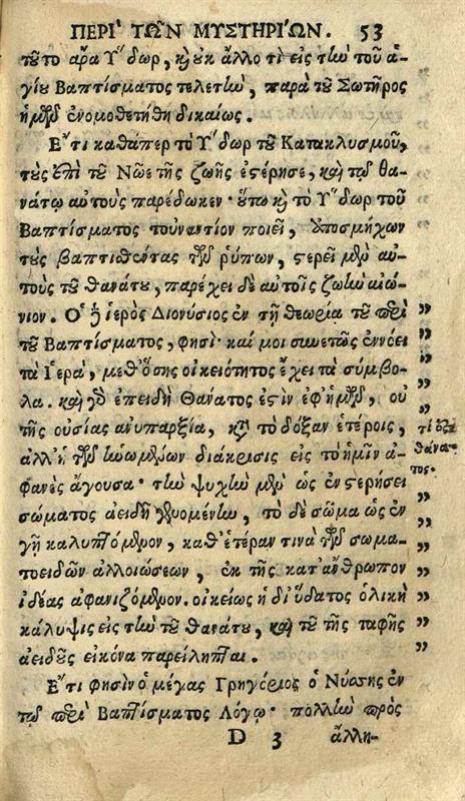 ΠΕΡΙ' ΤΩ͂Ν ΜΥΣΤΗΡΙ'ΩΝ. 53
τοῦτο ἄρα Υ῞δωρ, κ̀ οὐκ ἄλλο τὶ εἰς τὴν τοῦ ἁ-
γίου Βαπτίσματος τελετὴν, παρὰ τοῦ Σωτῆρος
ἡμῶν ἐνομοθετήθη δικαίως.
Ε῎τι καθάπερ τὸ Υ῞δωρ τοῦ Κατακλυσμοῦ,
τοὺς ἐπὶ τοῦ Νῶε τῆς ζωῆς ἐστέρησε, καὶ τῷ θα-
νάτῳ αὐτοὺς παρέδωκεν· οὕτω κ̀ τὸ Υ῞δωρ τοῦ
Βαπτίσματος τοὐναντίον ποιεῖ, ὑποσμήχων
τοὺς βαπτισθέντας τῶν ῥύπων, στερεῖ μὲν αὐ-
τοὺς τοῦ θανάτου, παρέχει δὲ αὐτοῖς ζωὴν αἰώ-
νιον. Ο῾ δὲ ἱερὸς Διονύσιος ἐν τῇ θεωρίᾳ τοῦ περὶ „
τοῦ Βαπτίσματος, φησὶ· καί μοι συνετῶς ἐννόει „
τὰ Ι῾ερὰ, μεθ' ὅσης οἰκειότητος ἔχει τὰ σύμβο- „
λα. καὶ γὸ ἐπειδὴ Θάνατος ἐστὶν ἐφ' ἡμῶν, οὐ „
τῆς οὐσίας ἀνυπαρξία, κατὰ τὸ δόξαν ἑτέροις, τί ἐστι
ἀλλ' ἡ τῶν ἡνωμένων διάκρισις εἰς τὸ ἡμῖν ἀ- θάνα-
φανὲς ἄγουσα· τὴν ψυχὴν μὲν ὡς ἐν στερήσει τος.
σώματος ἀειδῆ γενομένην, τὸ δὲ σῶμα ὡς ἐν „
γῇ καλυπτόμενον, καθ' ἑτέραν τινὰ τῶν σωμα- „
τοειδῶν ἀλλοιώσεων, ἐκ τῆς κατ' ἄνθρωπον „
ἰδέας ἀφανιζόμενον. οἰκείως ἡ δι' ὕδατος ὁλικὴ „
κάλυψις εἰς τὴν τοῦ θανάτου, καὶ τοῦ τῆς ταφῆς „
ἀειδοῦς εἰκόνα παρείληπται. „
Ε῎τι φησὶν ὁ μέγας Γρηγόριος ὁ Νύσσης ἐν
τῷ περὶ Βαπτίσματος Λόγῳ· πολλὴν πρὸς
D 3 ἄλλη-